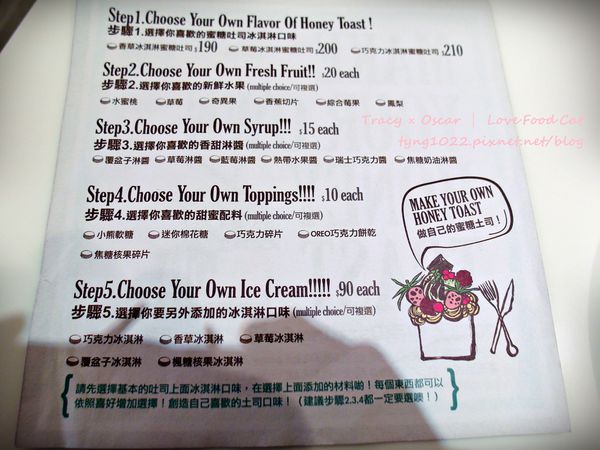 Step1.Choose Your Own Flavor Of Honey Toast !
步驟1.選擇你喜歡的蜜糖吐司冰淇淋口味
香草冰淇淋蜜糖吐司 $190 草莓冰淇淋蜜糖吐司 $200 巧克力冰淇淋蜜糖吐司 $210
Step2.Choose Your Own Fresh Fruit!! $20 each
步驟2.選擇你喜歡的新鮮水果 (multiple choice/可複選)
水蜜桃 草莓 奇異果 香蕉切片 綜合莓果 鳳梨
Tracy x Oscar | Love Food Cat
tyng1022.pixnet.net/blog
Step3.Choose Your Own Syrup!!! $15 each
步驟3.選擇你喜歡的香甜淋醬 (multiple choice/可複選)
覆盆子淋醬 草莓淋醬 藍莓淋醬 熱帶水果醬 瑞士巧克力醬 焦糖奶油淋醬
Step4.Choose Your Own Toppings!!!! $10 each
步驟4.選擇你喜歡的甜蜜配料 (multiple choice/可複選)
小熊軟糖 迷你棉花糖 巧克力碎片 OREO巧克力餅乾
焦糖核果碎片
MAKE YOUR OWN
HONEY TOAST
做自己的蜜糖土司！
Step5.Choose Your Own Ice Cream!!!!! $90 each
步驟5.選擇你要另外添加的冰淇淋口味 (multiple choice/可複選)
巧克力冰淇淋 香草冰淇淋 草莓冰淇淋
覆盆子冰淇淋 楓糖核果冰淇淋
請先選擇基本的吐司上面冰淇淋口味，在選擇上面添加的材料喲！每個東西都可以
依照喜好增加選擇！創造自己喜歡的土司口味！（建議步驟2.3.4都一定要選噢！）